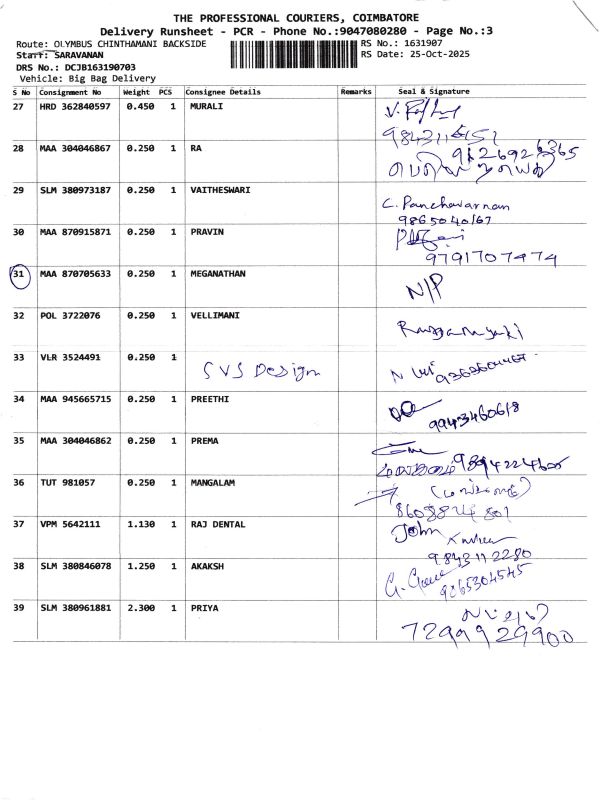 THE PROFESSIONAL COURIERS, COIMBATORE
Delivery Runsheet - PCR - Phone No.:9047080280 - Page No.:3
Route: OLYMBUS CHINTHAMANI BACKSIDE RS No.: 1631907
Staff: SARAVANAN RS Date: 25-Oct-2025
DRS No.: DCJB163190703
Vehicle: Big Bag Delivery
S No Consignment No Weight PCS Consignee Details Remarks Seal & Signature
27 HRD 362840597 0.450 1 MURALI
28 MAA 304046867 0.250 1 RA 9626926365
29 SLM 380973187 0.250 1 VAITHESWARI C. Panchavarnam
9865040167
30 MAA 870915871 0.250 1 PRAVIN
9791707474
31 MAA 870705633 0.250 1 MEGANATHAN N/P
32 POL 3722076 0.250 1 VELLIMANI
33 VLR 3524491 0.250 1 SVS Design
34 MAA 945665715 0.250 1 PREETHI 9943460618
35 MAA 304046862 0.250 1 PREMA
36 TUT 981057 0.250 1 MANGALAM
37 VPM 5642111 1.130 1 RAJ DENTAL John
9843112280
38 SLM 380846078 1.250 1 AKAKSH 9865304545
39 SLM 380961881 2.300 1 PRIYA
7299929900